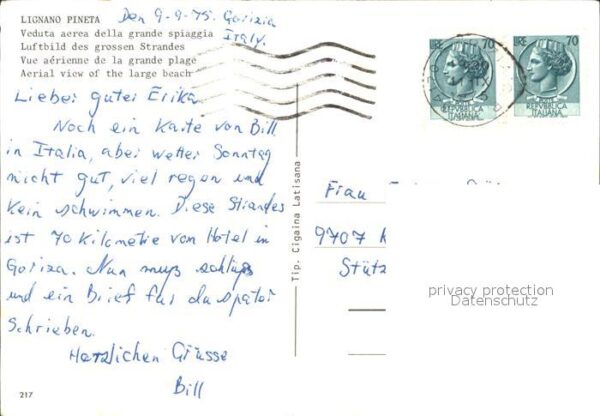 LIGNANO PINETA
Veduta aerea della grande spiaggia
Luftbild des grossen Strandes
Vue aérienne de la grande plage
Aerial view of the large beach
Den 9-9-75. Gorizia
Italy.
Liebe, gutes Erika
Noch ein Karte von Bill
in Italia, aber wetter Sonntag
nicht gut, viel regen und
Kein schwimmen. Diese Strandes
ist 70 Kilometre von Hotel in
Goriza. Nun muss schluss
und ein Brief für du später
Schrieben.
Herzlichen Grüsse
Bill
217
Tip. Cigaina Latisana
LIRE 70
REPUBBLICA
ITALIANA
LIRE 70
REPUBBLICA
ITALIANA
Frau
9707 K
Stütz
privacy protection
Datenschutz